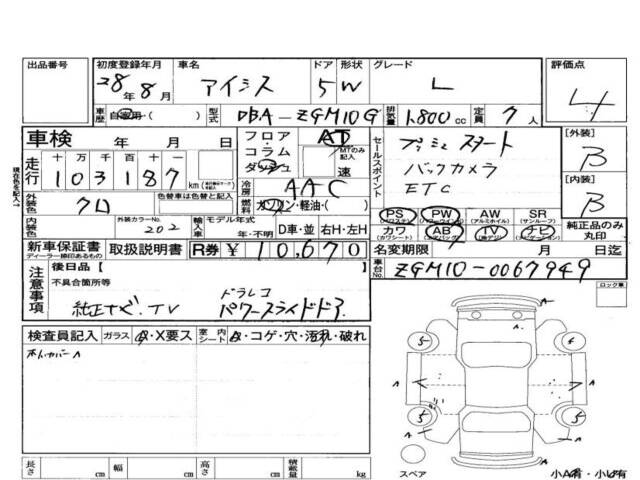 出品番号 初度登録年月 車名 ドア 形状 グレード 評価点
28年 8月 アイシス 5 W L 4
車歴 自家用( ) 型式 DBA-ZGM10G 排気量 1,800cc 定員 7人
車検 年 月 日 フロア・コラム・ダッシュ AT MTのみ記入 速
セールスポイント プッシュスタート
バックカメラ
ETC
[外装] B
[内装] B
走行 十万千百十一
103187 km
冷房 AAC
現在色を記入↑
外装色 クロ 色替は色替と記入 燃料 ガソリン・軽油・( )
PS PW AW SR
(パワステ) (パワーウインド) (アルミホイル) (サンルーフ)
カワ AB TV ナビ
(カワシート) (エアバッグ) (地デジ) (ナビゲーション)
純正品のみ丸印
内装色 外装カラーNo. 202 輸入車 モデル年式 年・不明 D車・並 右H・左H
新車保証書 取扱説明書 R券 ¥10,670 名変期限 月 日迄
ディーラー検印あるもの
車台No. ZGM10-0067949
注意事項 後日品【
不具合箇所等
ドラレコ
純正ナビ.TV パワースライドドア
ロック車
検査員記入 ガラス A・X要ス 室内シート A・コゲ・穴・汚れ・破れ
ホイルカバーA
A
5 6
A A
5 5
A
A
スペア
小A有・小U有
長さ cm 幅 cm 高さ cm 積載量 kg